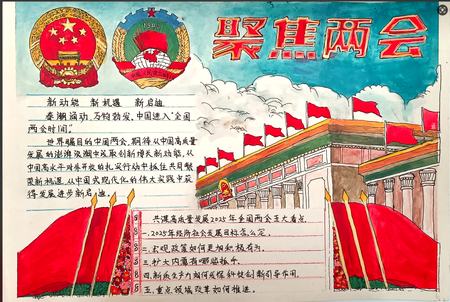 聚焦两会
新动能 新机遇 新启迪
春潮涌动,万钧勃发,中国进入“全国
两会时间”。
世界瞩目的中国两会,期待从中国高质量
发展的澎湃浪潮中汲取创新增长新动能,从
中国高水平对外开放的扎实行动中抓住共同繁
荣新机遇,从中国式现代化的伟大实践中获
得发展进步新启迪。
共谋高质量发展2025年全国两会五大看点
一.2025年经济社会发展目标怎么定。
二.宏观政策如何更加积极有为。
三.扩大内需有哪些抓手。
四.新质生产力如何发挥科技创新引导作用。
五.重点领域改革如何推进。